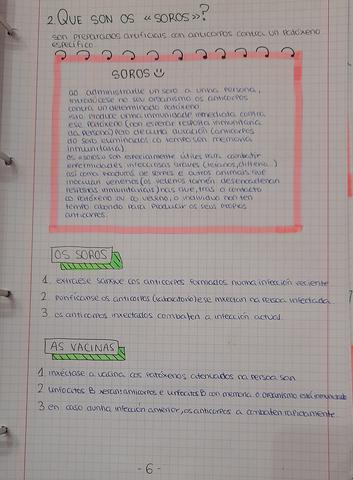 2. QUE SON OS «SOROS»?
son preparados artificiais con anticorpos contra un patóxeno
específico
SOROS
ao administrarlle un soro a unha persoa,
introdúcese no seu organismo os anticorpos
contra un determinado patóxeno
isto produce unha inmunidade inmediata contra
ese patóxeno (non esperar resposta inmunitaria
da persoa) pero de curta duración (anticorpos
do soro eliminados co tempo sen memoria
inmunitaria)
os «soros» son especialmente útiles para combater
enfermidades infecciosas graves (tétanos, difteria...)
así como produtos de serpes e outros animais que
inoculan velenos (os velenos tamén desencadean
respostas inmunitarias) nas que, tras o contacto
co patóxeno ou co veleno, o individuo non ten
tempo abondo para producir os seus propios
anticorpos.
OS SOROS
1. extráese sangue cos anticorpos formados nunha infección recente
2. purifícanse os anticorpos (laboratorio) e se inxectan na persoa infectada.
3. os anticorpos inxectados combaten a infección actual.
AS VACINAS
1 inxéctase a vacina cos patóxenos atenuados na persoa san
2 linfocitos B xeran anticorpos e linfocitos B con memoria o organismo está inmunizado
3 en caso dunha infección anterior, os anticorpos a combaten rapidamente
- 6 -